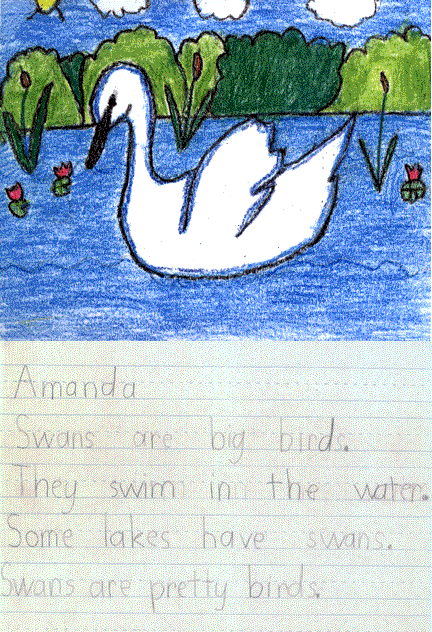 Amanda
Swans are big birds.
They swim in the water.
Some lakes have swans.
Swans are pretty birds.